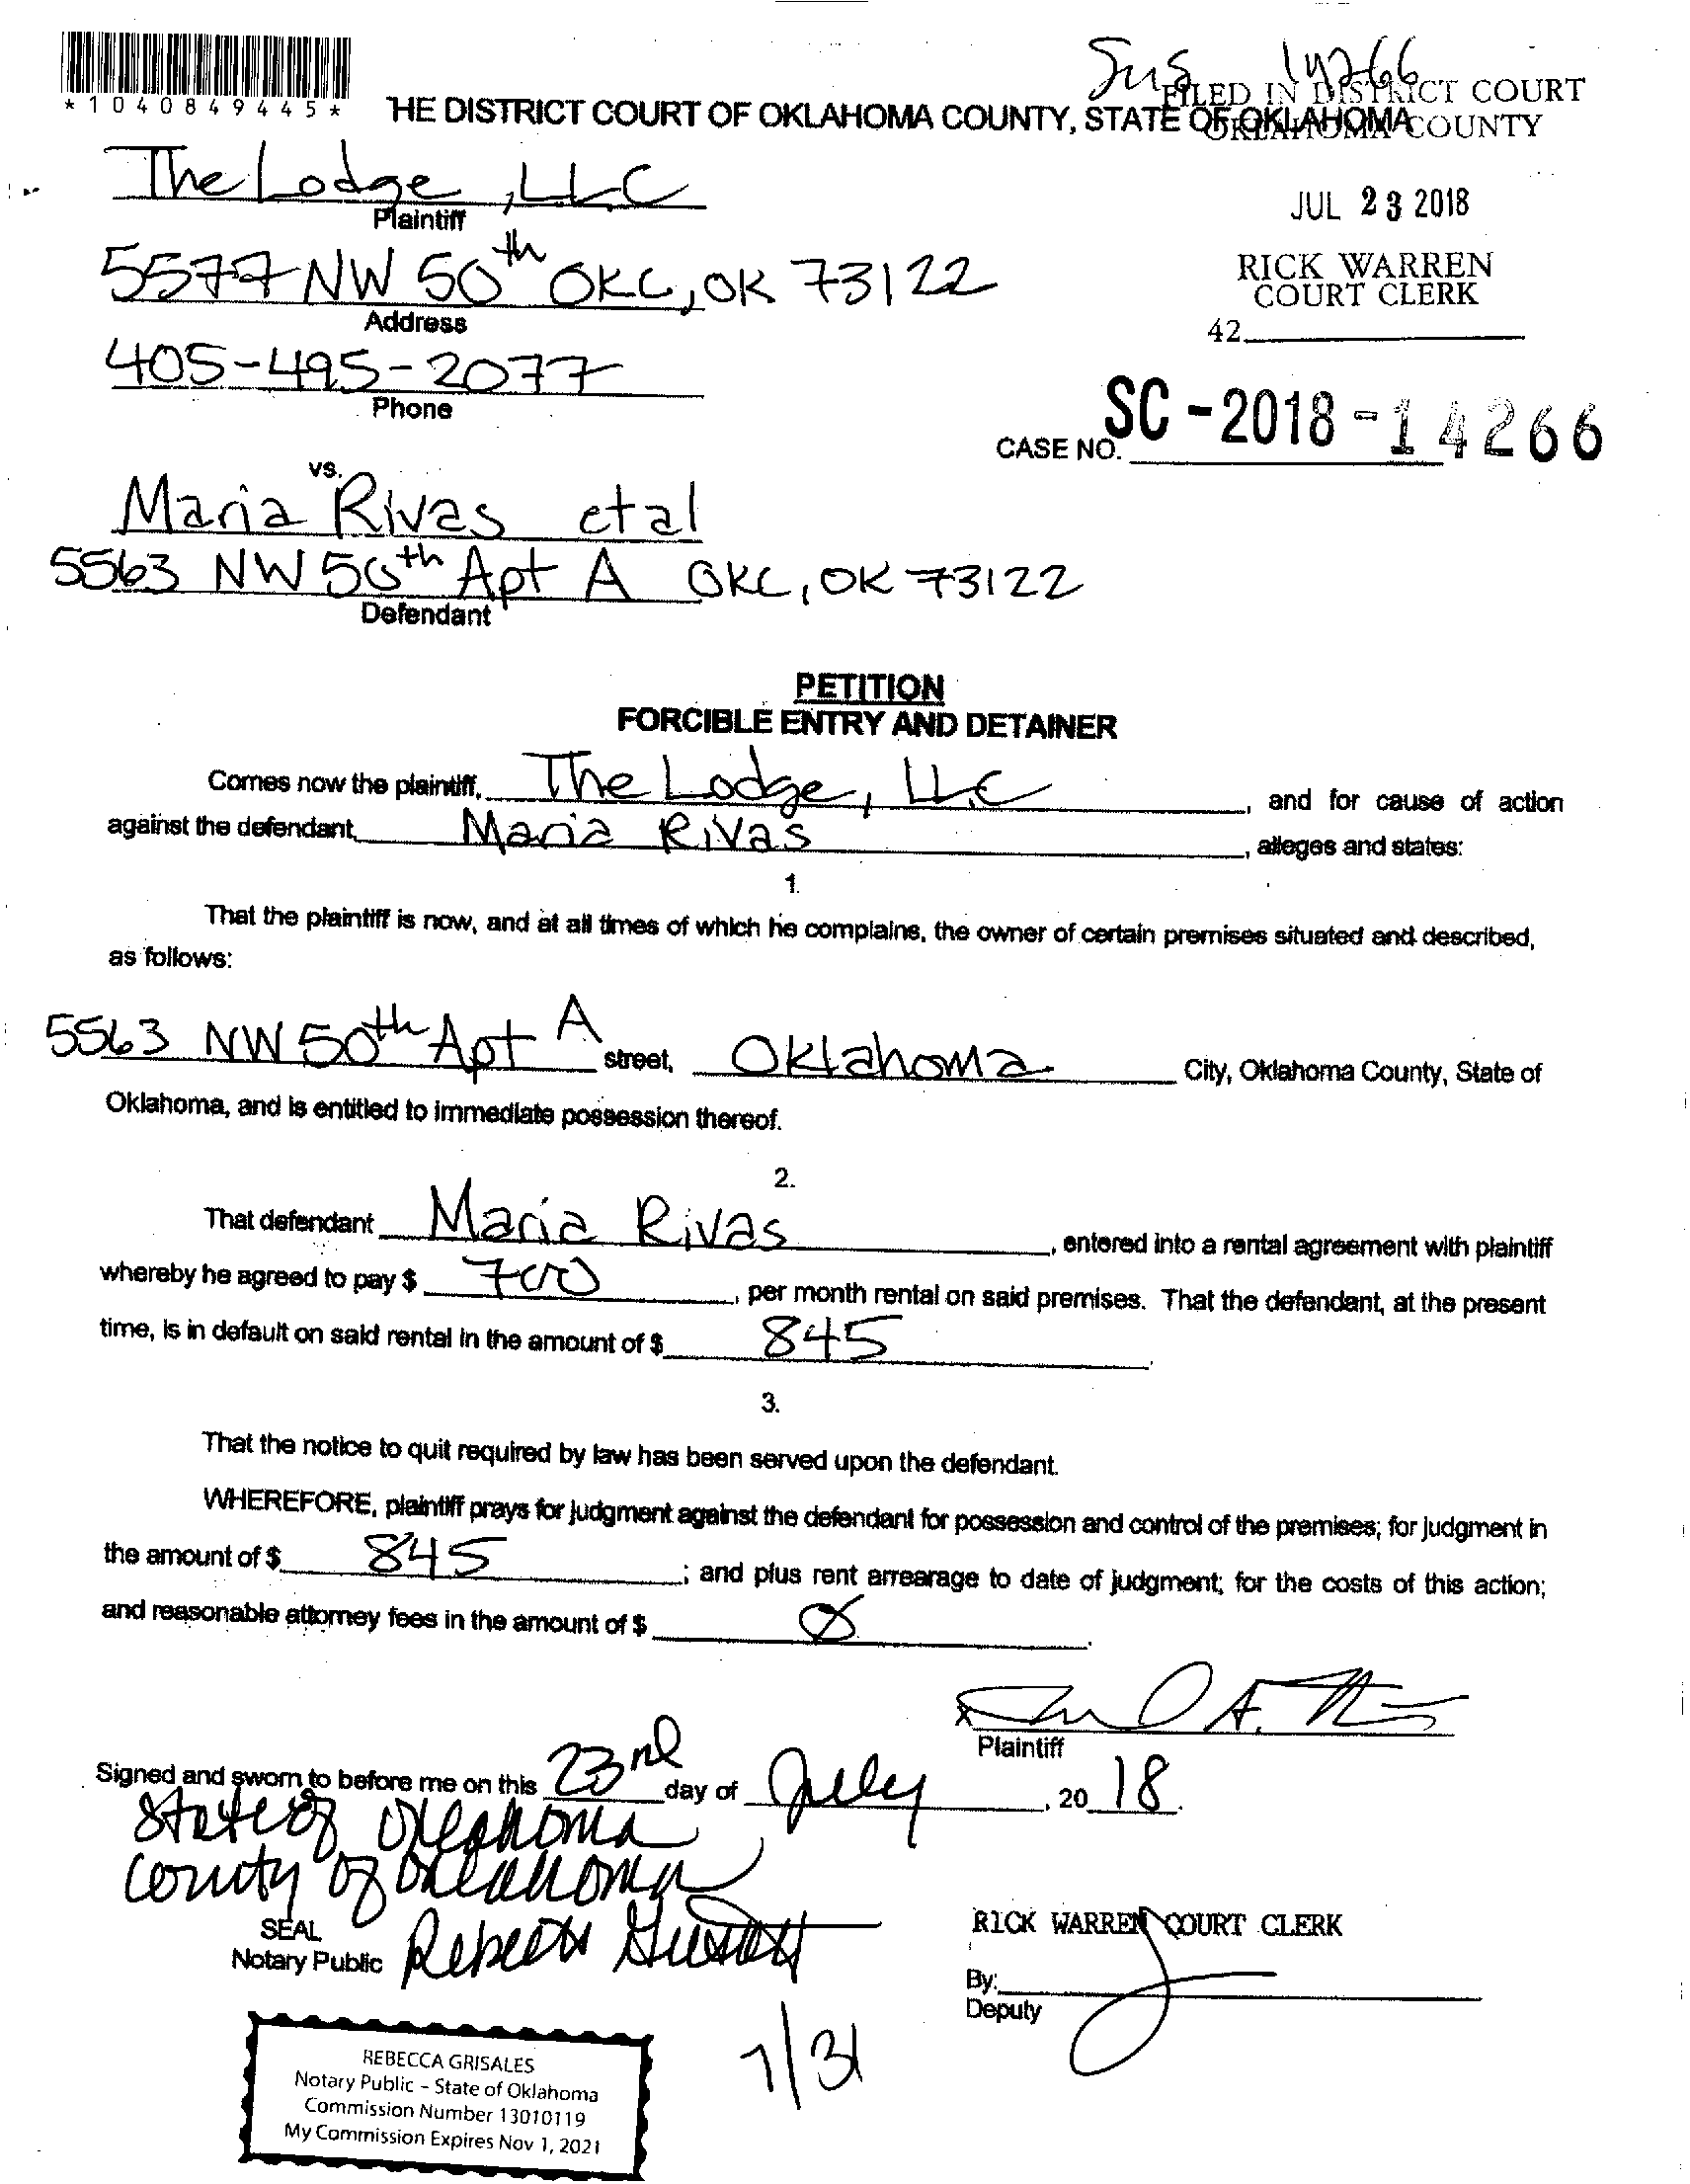 *1040849445*
14266
FILED IN DISTRICT COURT
HE DISTRICT COURT OF OKLAHOMA COUNTY, STATE OF OKLAHOMA
OKLAHOMA COUNTY
The Lodge, LLC
Plaintiff
JUL 23 2018
5577 NW 50th OKC, OK 73122
Address
RICK WARREN
COURT CLERK
42
405-495-2077
Phone
CASE NO. SC-2018-14266
vs.
Maria Rivas etal
5563 NW 50th Apt A OKC, OK 73122
Defendant
PETITION
FORCIBLE ENTRY AND DETAINER
Comes now the plaintiff, The Lodge, LLC, and for cause of action
against the defendant, Maria Rivas, alleges and states:
1.
That the plaintiff is now, and at all times of which he complains, the owner of certain premises situated and described,
as follows:
5563 NW 50th Apt A street, Oklahoma City, Oklahoma County, State of
Oklahoma, and is entitled to immediate possession thereof.
2.
That defendant Maria Rivas, entered into a rental agreement with plaintiff
whereby he agreed to pay $ 700, per month rental on said premises. That the defendant, at the present
time, is in default on said rental in the amount of $ 845.
3.
That the notice to quit required by law has been served upon the defendant.
WHEREFORE, plaintiff prays for judgment against the defendant for possession and control of the premises; for judgment in
the amount of $ 845; and plus rent arrearage to date of judgment; for the costs of this action;
and reasonable attorney fees in the amount of $ Ø.
x
Plaintiff
Signed and sworn to before me on this 23rd day of July, 2018.
State of Oklahoma
County of Oklahoma
SEAL
Notary Public Rebecca Grisales
RICK WARREN COURT CLERK
By:
Deputy
7/31
REBECCA GRISALES
Notary Public - State of Oklahoma
Commission Number 13010119
My Commission Expires Nov 1, 2021